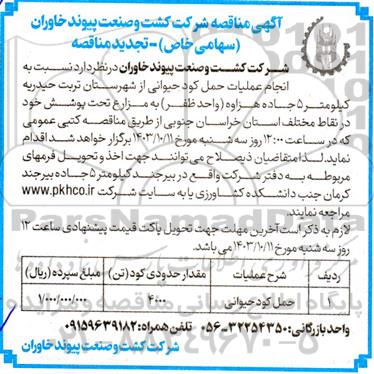 آگهی مناقصه شرکت کشت و صنعت پیوند خاوران
(سهامی خاص) - تجدید مناقصه
شرکت کشت و صنعت پیوند خاوران در نظر دارد نسبت به
انجام عملیات حمل کود حیوانی از شهرستان تربت حیدریه
کیلومتر ۵ جاده هزاوه (واحد ظفر) به مزارع تحت پوشش خود
در نقاط مختلف استان خراسان جنوبی از طریق مناقصه کتبی عمومی
که در ساعت ۱۲:۰۰ روز سه شنبه مورخ ۱۴۰۳/۱۰/۱۱ برگزار خواهد شد اقدام
نماید. لذا متقاضیان ذیصلاح می‌توانند جهت اخذ و تحویل فرمهای
مربوطه به دفتر شرکت واقع در بیرجند کیلومتر ۵ جاده بیرجند
کرمان جنب دانشکده کشاورزی یا به سایت شرکت www.pkhco.ir
مراجعه نمایند.
لازم به ذکر است آخرین مهلت جهت تحویل پاکت قیمت پیشنهادی ساعت ۱۲
روز سه شنبه مورخ ۱۴۰۳/۱۰/۱۱ می باشد.
ردیف شرح عملیات مقدار حدودی کود (تن) مبلغ سپرده (ریال)
۱ حمل کود حیوانی ۴۰۰۰ ۱/۰۰۰/۰۰۰/۰۰۰
واحد بازرگانی: ۳۲۲۵۴۳۵۰-۰۵۶ تلفن همراه: ۰۹۱۵۹۶۳۹۱۸۲
شرکت کشت و صنعت پیوند خاوران